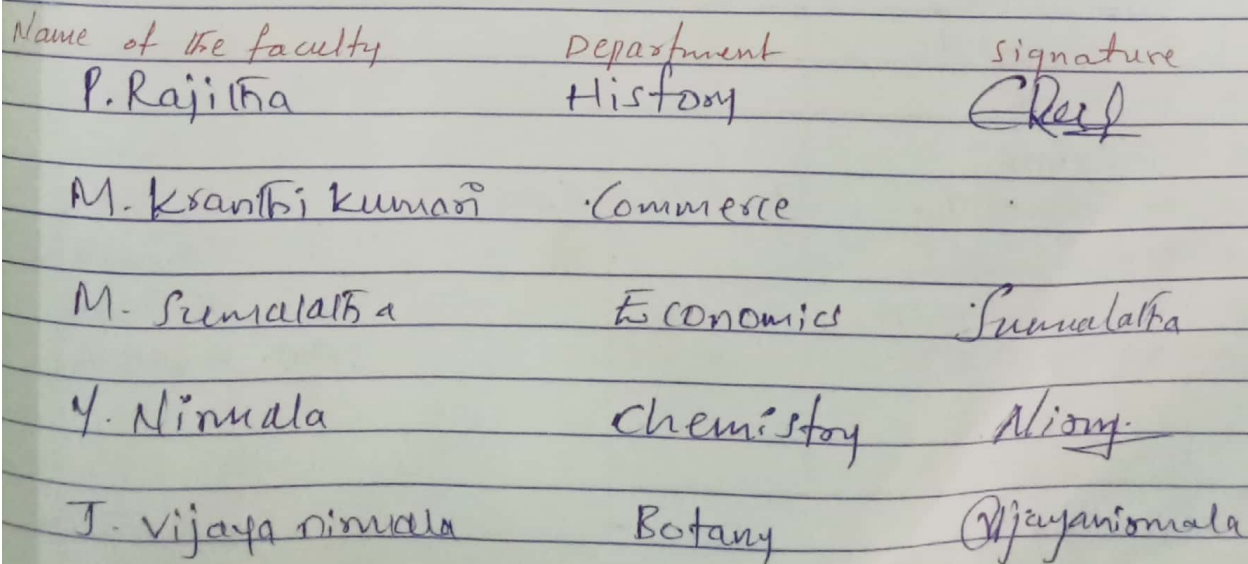 Name of the faculty Department Signature
P. Rajitha History
M. Kranthi Kumari Commerce
M. Sumalatha Economics Sumalatha
Y. Nirmala Chemistry
J. Vijaya nirmala Botany Vijayanirmala